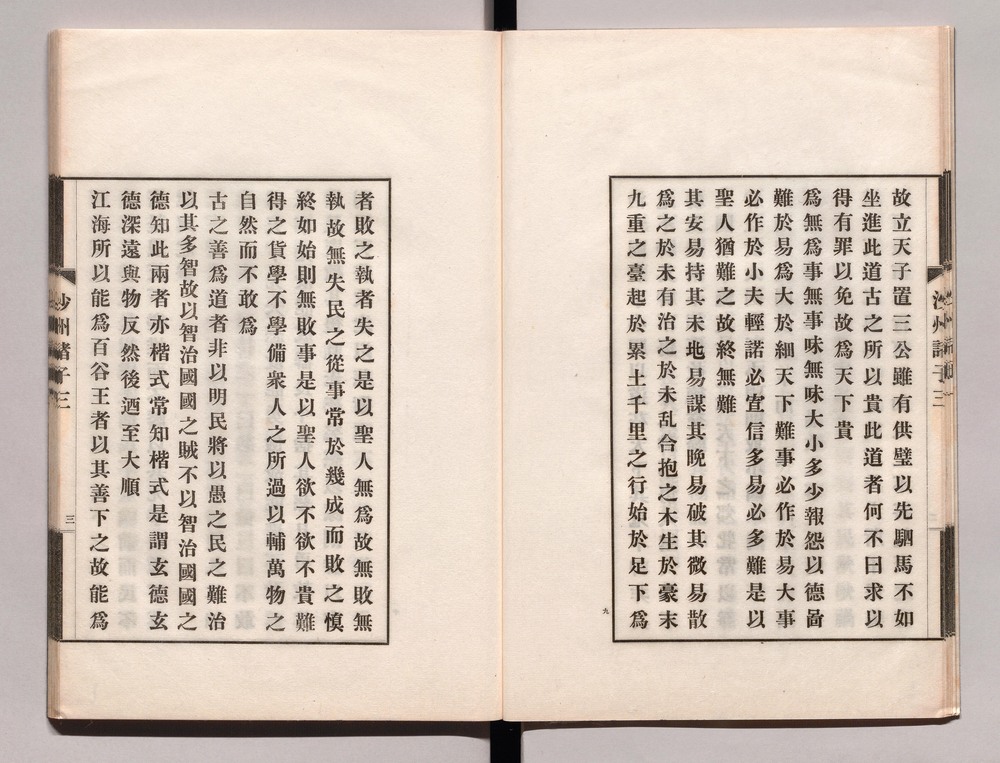 故立天子置三公雖有供璧以先駟馬不如
坐進此道古之所以貴此道者何不曰求以
得有罪以免故爲天下貴
爲無爲事無事味無味大小多少報怨以德啚
難於易爲大於細天下難事必作於易大事
必作於小夫輕諾必宣信多易必多難是以
聖人猶難之故終無難
其安易持其未地易謀其晚易破其微易散
爲之於未有治之於未乱合抱之木生於豪末
九重之臺起於累土千里之行始於足下爲
九
者敗之執者失之是以聖人無爲故無敗無
執故無失民之從事常於幾成而敗之慎
終如始則無敗事是以聖人欲不欲不貴難
得之貨學不學備衆人之所過以輔萬物之
自然而不敢爲
古之善爲道者非以明民將以愚之民之難治
以其多智故以智治國國之賊不以智治國國之
德知此兩者亦楷式常知楷式是謂玄德玄
德深遠與物反然後迺至大順
江海所以能爲百谷王者以其善下之故能爲
三